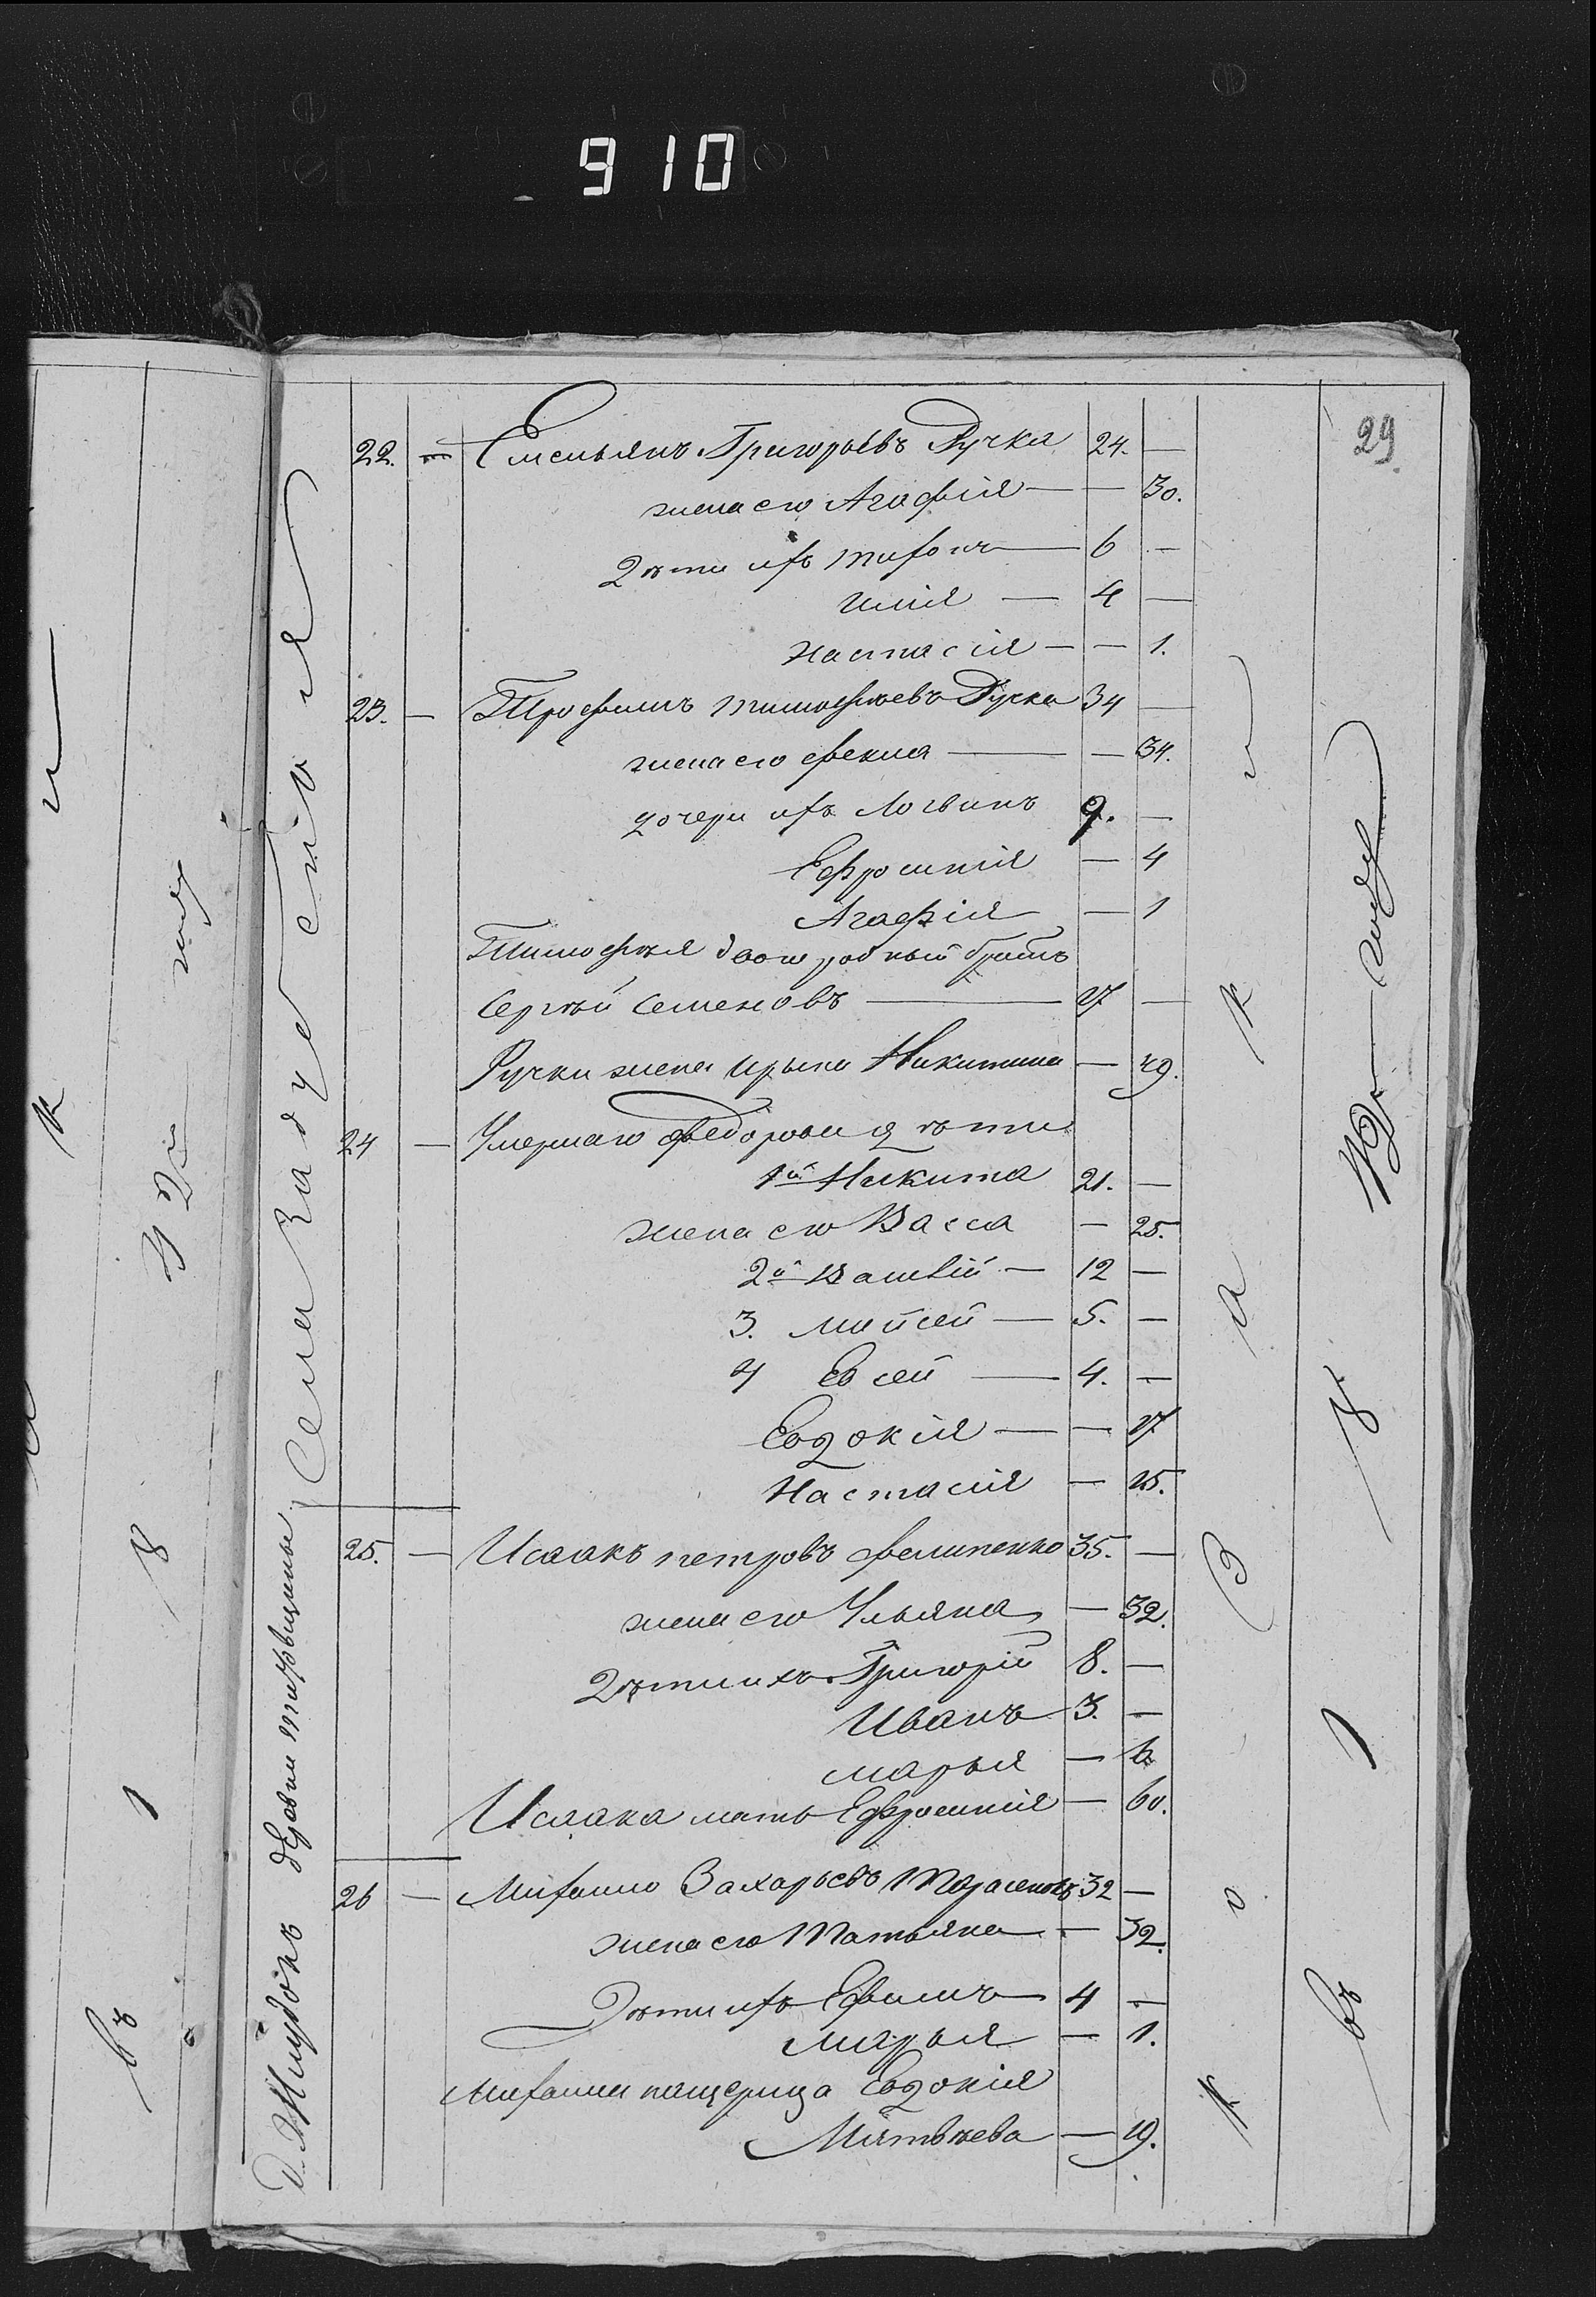 910
29
22. — Емельянъ Григорьевъ Ручка 24. —
жена его Агафiя — — 30.
Дѣти ихъ Тихонъ — 6 —
Илiя — 4 —
Настасiя — — 1.
23. — Трофимъ Тимофѣевъ Ручка 34 —
жена его Фекла — — 34.
дочери ихъ Логвинъ 9. —
Ефросинiя — 4
Агафiя — 1
Тимофѣя двоюродный братъ
Сергѣй Семеновъ — 17 —
Ручки жена Ирына Никитина — 49.
24 — Умершаго Федорова дѣти
1й Никита 21. —
жена его Васса — 25.
2й 12 —
3. Мойсей — 5. —
4 Евсей — 4. —
Евдокiя — — 17
Настасiя — 15.
25. — Исаакъ Петровъ Филипенко 35. —
жена его Ульяна — 32.
Дѣти ихъ Григорiй 8. —
Иванъ 3. —
Марья — 6
Исаака мать Ефросинiя — 60.
26 — Михайло Захарьевъ Тарасенокъ 32 —
жена его Татьяна — 32.
Дѣти ихъ Ефимъ — 4 —
Марья — 1.
Михаила пащерица Евдокiя
Матвѣева — 19.
Села
Деревни
въ 8 1
въ 1 8